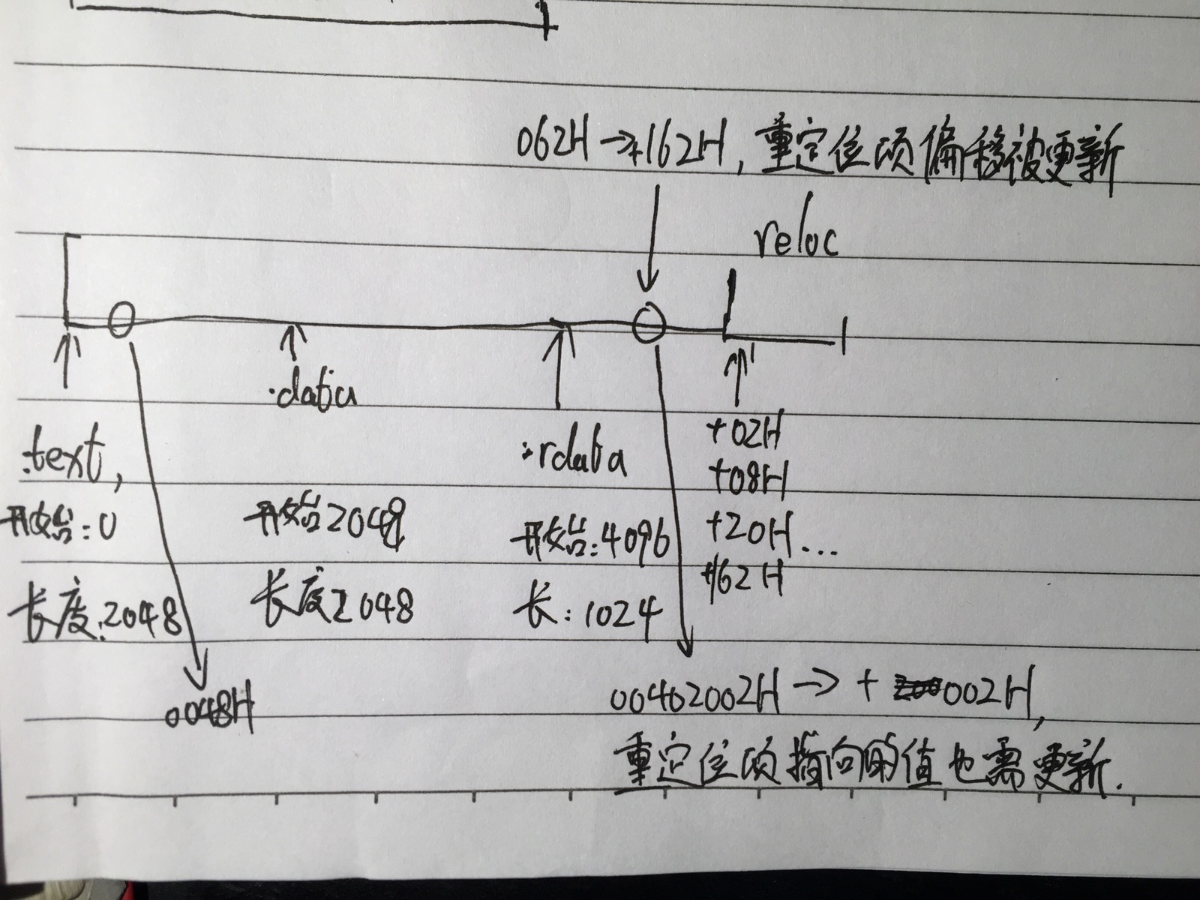 062H→+162H,重定位项偏移被更新
reloc
.data
.text,
.rdata
+02H
+08H
+20H...
+162H
开始:0
开始2048
开始:4096
长度:2048
长度2048
长:1024
0048H
00402002H→+002H,
重定位项指向的值也需更新.